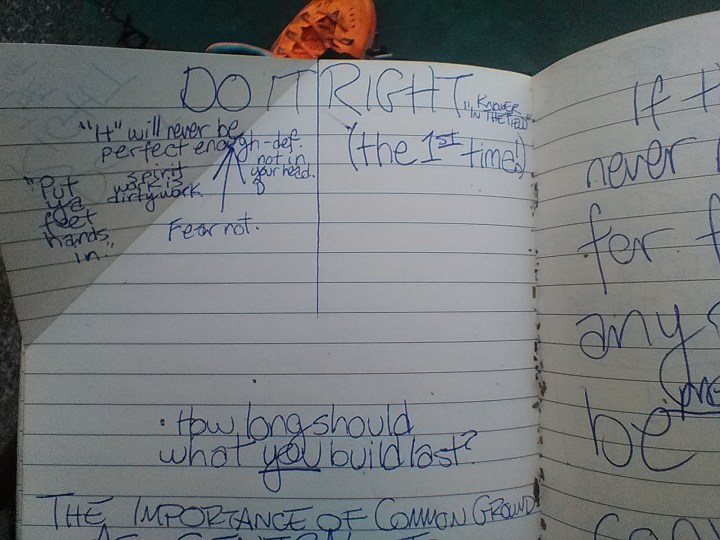 DO IT RIGHT
"KNOWER
IN THE FIELD"
(the 1st time!)
"It" will never be
perfect enough - def.
not in
your head.
spirit
work is
dirty work.
"Put
ya
feet
hands
in."
Fear not.
• How long should
what you build last?
THE IMPORTANCE OF COMMON GROUND
If
never
for
any
be